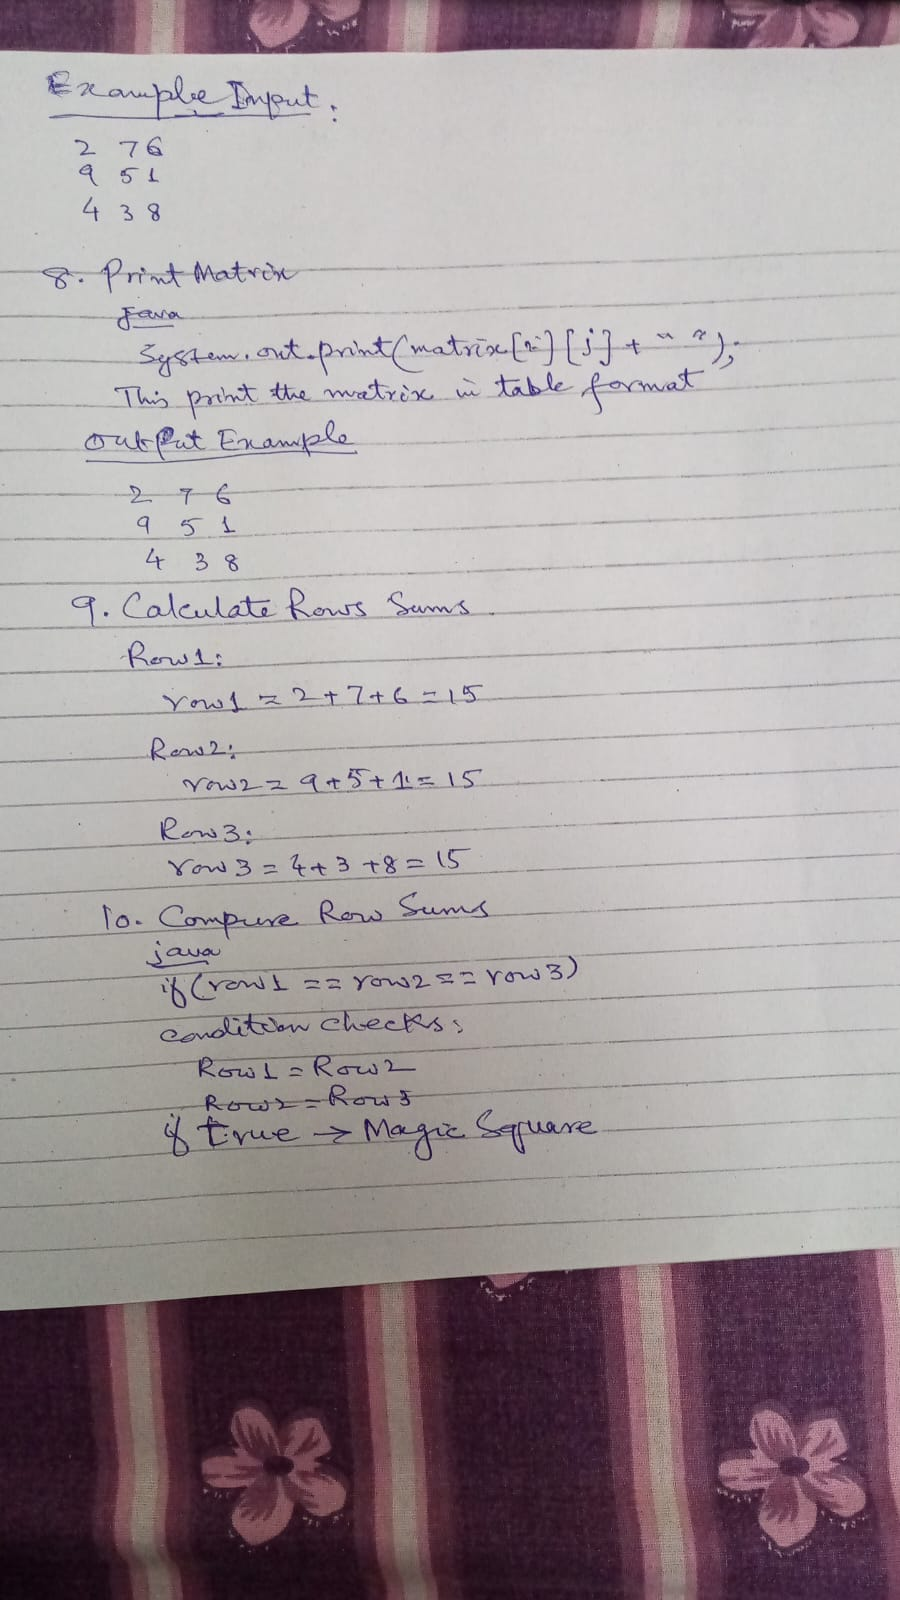 Example Input:
2 7 6
9 5 1
4 3 8
8. Print Matrix
Java
System.out.print(matrix[i][j] + " ");
This print the matrix in table format
Output Example
2 7 6
9 5 1
4 3 8
9. Calculate Rows Sums.
Row1:
row1 = 2+7+6=15
Row2:
row2 = 9+5+1=15
Row3:
row3 = 4+3+8=15
10. Compure Row Sums
java
if(row1 == row2 == row3)
condition checks:
Row1 = Row2
Row2 = Row3
if true → Magic Square